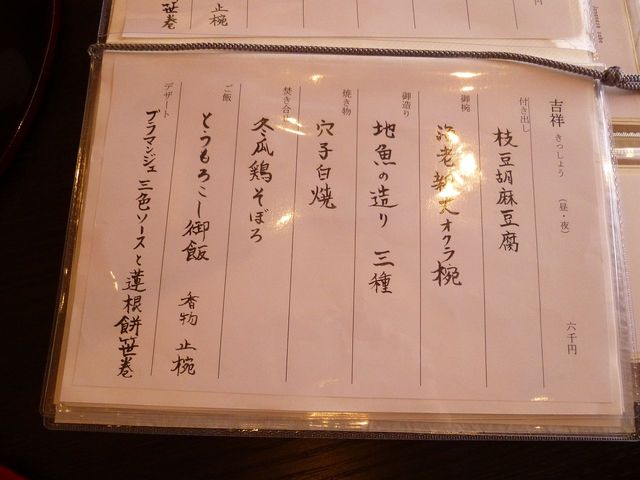 吉祥 きっしょう （昼・夜） 六千円
付き出し
枝豆胡麻豆腐
御椀
海老新丈オクラ椀
御造り
地魚の造り 三種
焼き物
穴子白焼
焚き合
冬瓜鶏そぼろ
ご飯
とうもろこし御飯 香物 止椀
デザート
ブラマンジュ三色ソースと蓮根餅笹巻
止椀
笹巻